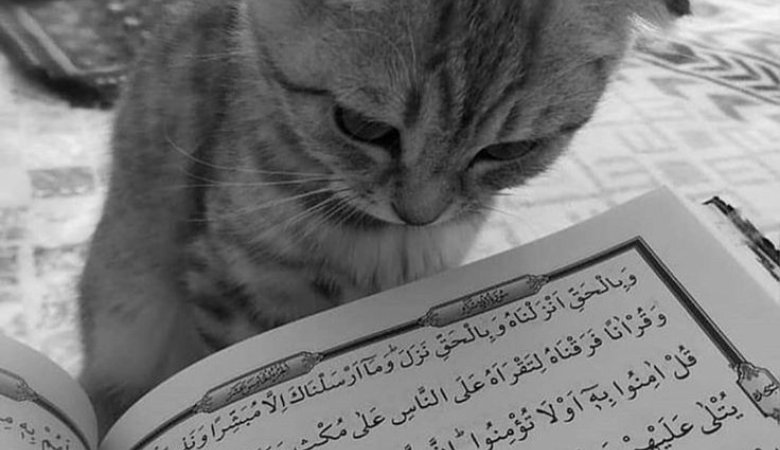 وَبِالْحَقِّ اَنْزَلْنَاهُ وَبِالْحَقِّ نَزَلَۜ وَمَٓا اَرْسَلْنَاكَ اِلَّا مُبَشِّرًا
وَقُرْاٰنًا فَرَقْنَاهُ لِتَقْرَاَهُ عَلَى النَّاسِ عَلٰى مُكْثٍ
قُلْ اٰمِنُوا بِهٖٓ اَوْ لَا تُؤْمِنُوا
يُتْلٰى عَلَيْهِمْ